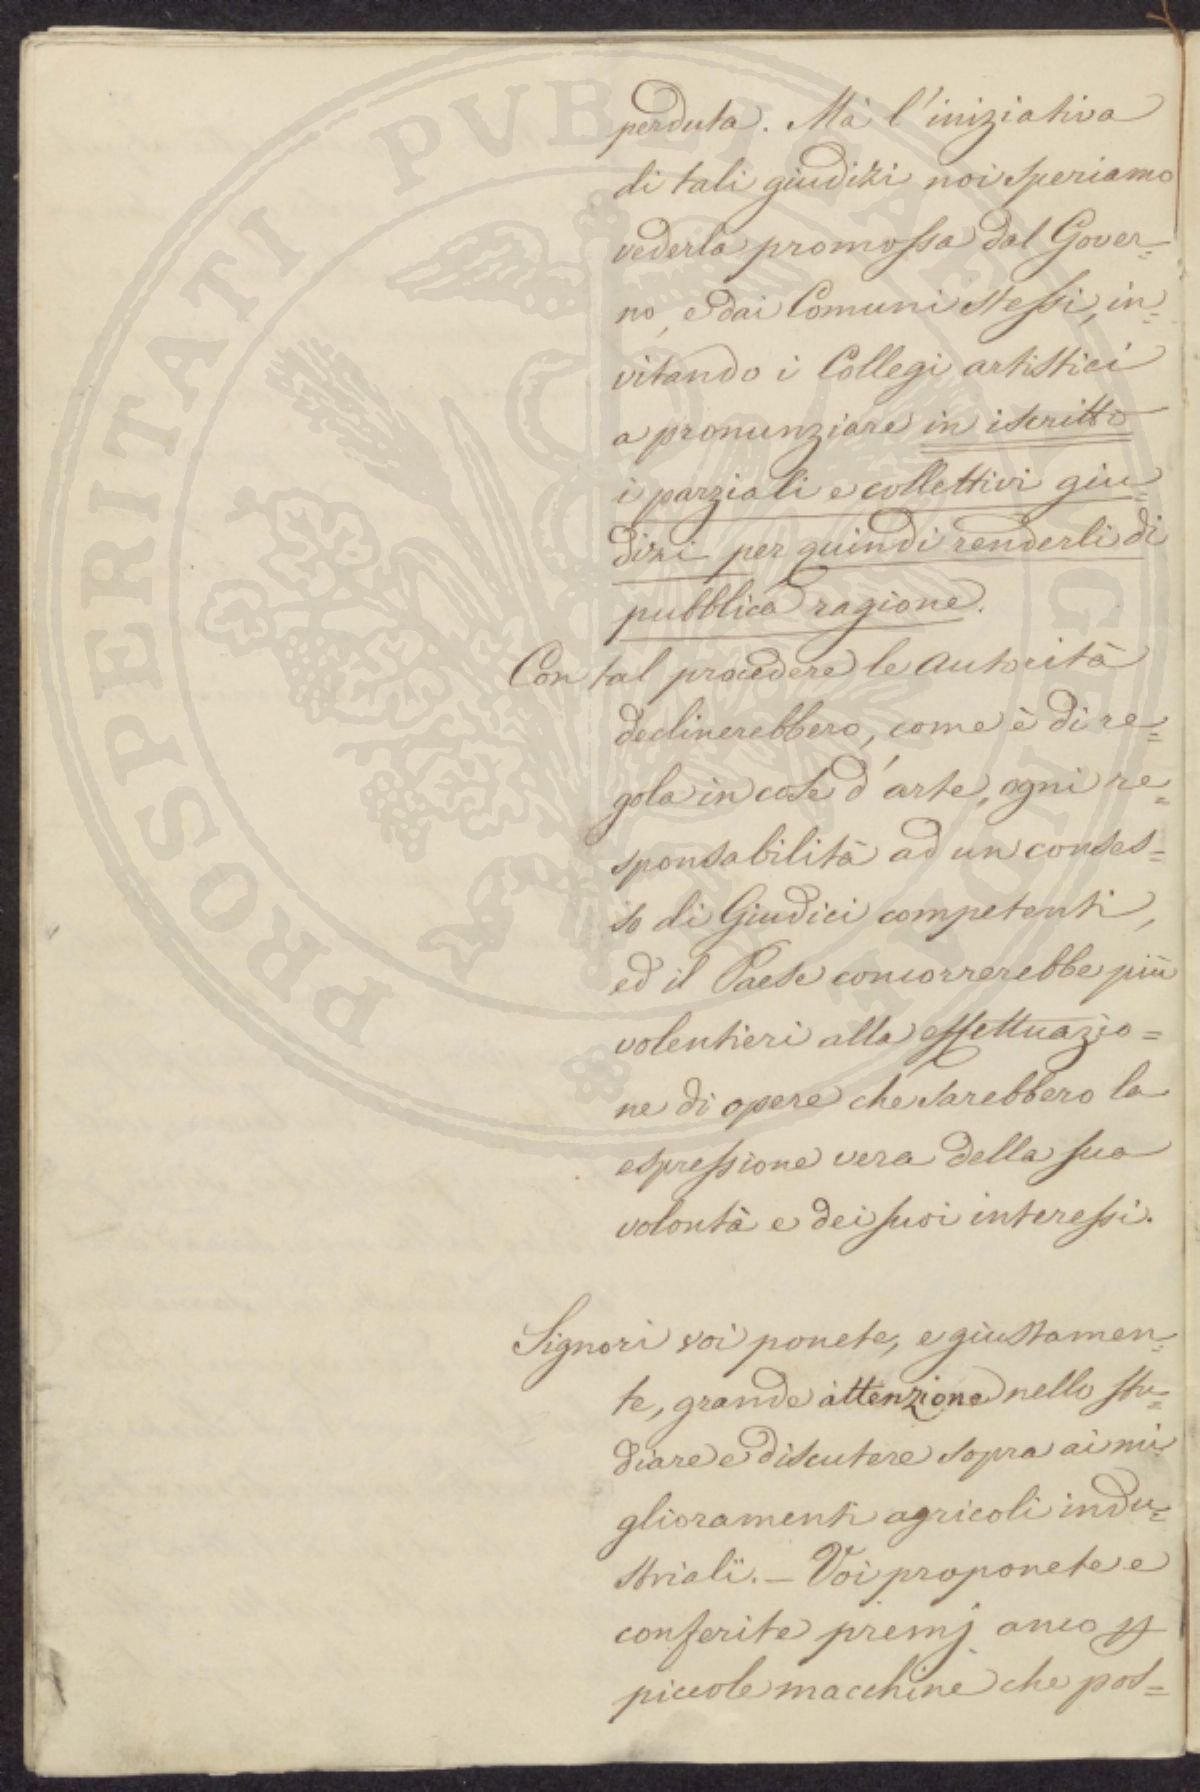 perduta. Mà l'iniziativa
di tali giudizi noi speriamo
vederla promossa dal Gover=
no, e dai Comuni stessi, in=
vitando i Collegi artistici
a pronunziare in iscritto
i parziali e collettivi giu=
dizi per quindi renderli di
pubblica ragione.
Con tal procedere le autorità
declinerebbero, come è di re=
gola in cose d'arte, ogni re=
sponsabilità ad un conses=
so di Giudici competenti,
ed il Paese concorrerebbe più
volentieri alla effettuazio=
ne di opere che sarebbero la
espressione vera della sua
volontà e dei suoi interessi.
Signori voi ponete, e giustamen=
te, grande attenzione nello stu=
diare e discutere sopra ai mi=
glioramenti agricoli indu=
striali. _ Voi proponete e
conferite premj anco
piccole macchine che pos=
PROSPERITATI PVBLICAE AVGENDAE